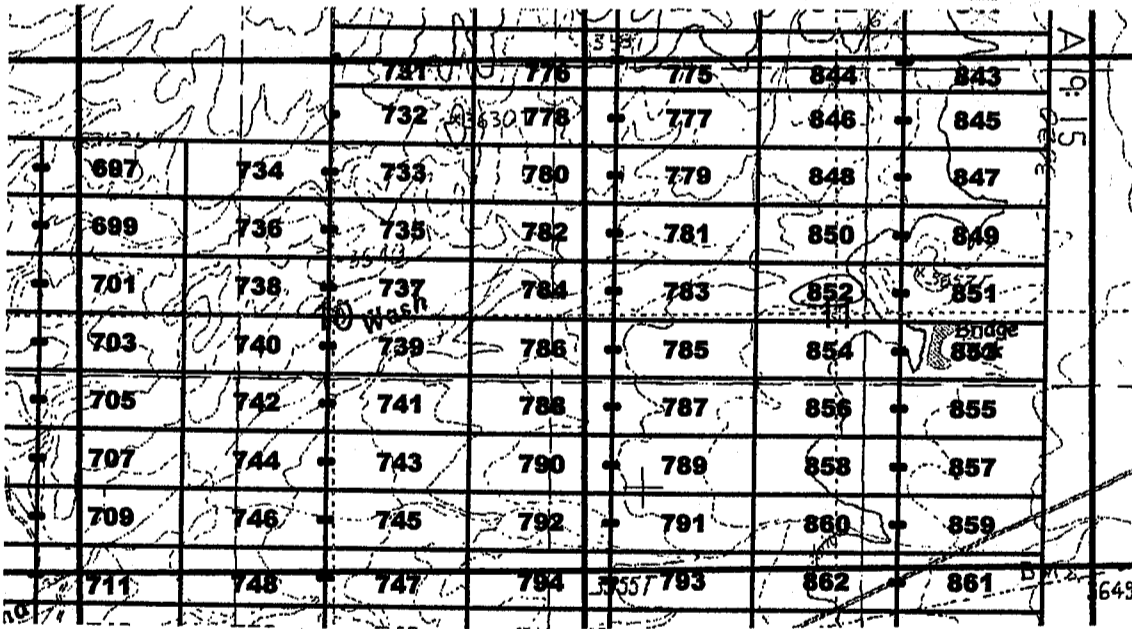 3431
A
731 776 775 844 843
9: 15
732 3630 778 777 846 845
697 734 733 780 779 848 847
699 736 735 782 781 850 849
701 738 737 784 783 852 851
Wash
Bridge
703 740 739 786 785 854 853
705 742 741 788 787 856 855
707 744 743 790 789 858 857
709 746 745 792 791 860 859
711 748 747 794 3555T 793 862 861
3649